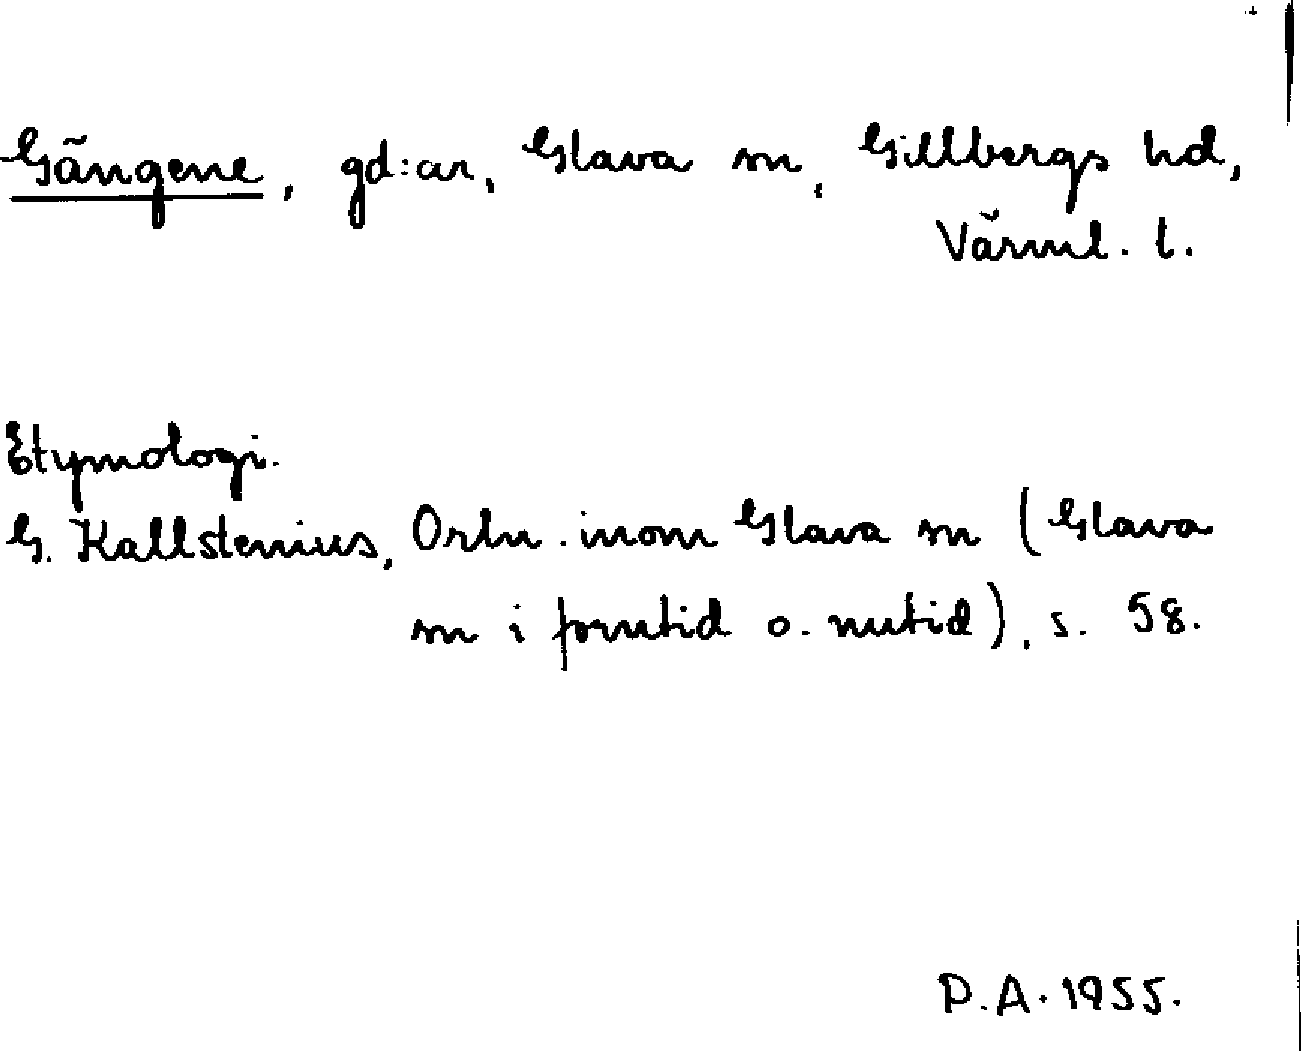 Gängene, gd:ar, Glava sn, Gillbergs hd,
Värml. l.
Etymologi.
G. Kallstenius, Ortn. inom Glava sn (Glava
sn i forntid o. nutid), s. 58.
P.A. 1955.